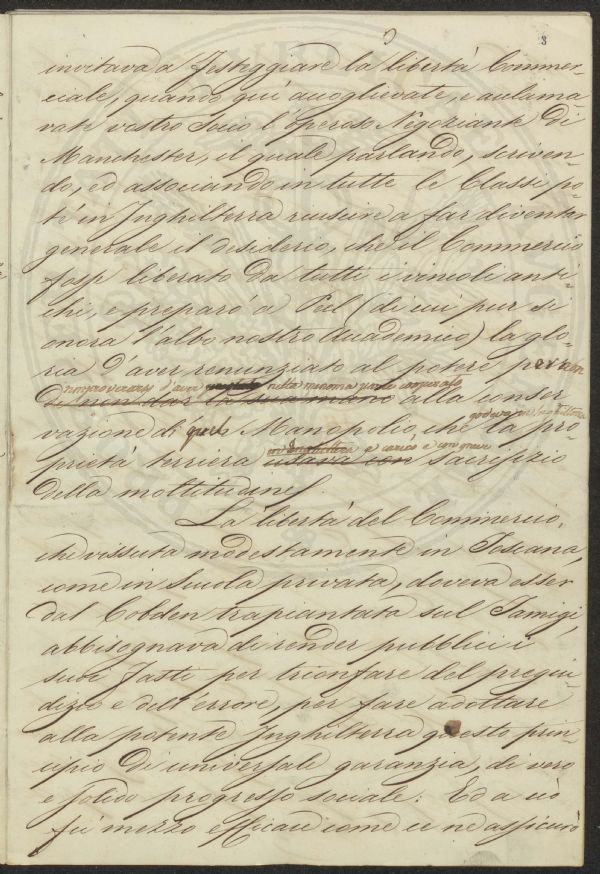 3
invitava a festeggiare la libertà Commer-
ciale, quando quì accoglievate, e aclama
vate vostro Socio l'operoso Negoziante Di
Manchester, il quale parlando, scriven-
do, ed associando in tutte le Classi, po-
té in Inghilterra riuscire a far diventar
generale il desiderio, che il Commercio
fosse liberato da tutti i vincoli anti-
chi, e preparò a Peel (di cui pur si
onora l'albo nostro Accademico) la glo-
ria d'aver renunziato al potere, per non
rimproverarsi d'aver nella memoria cooperato
di non dar la sua mano alla conser
godeva in Inghilterra
vazione di quel Monopolio, che la pro-
a carico e con grave
prietà terriera con sacrifizio
della moltitudine.
La libertà del Commercio,
che vissuta modestamente in Toscana,
come in Scuola privata, doveva esser
dal Cobden trapiantata sul Tamigi,
abbisognava di render pubblici i
suoi fasti per trionfare del pregiu-
dizio e dell'errore, per fare adottare
alla potente Inghilterra questo prin-
cipio di universale garanzia, di vero
e solido progresso sociale. Ed a ciò
fù mezzo efficace come ce ne assicurò